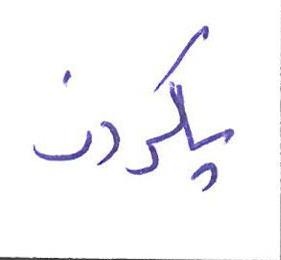 پکردن